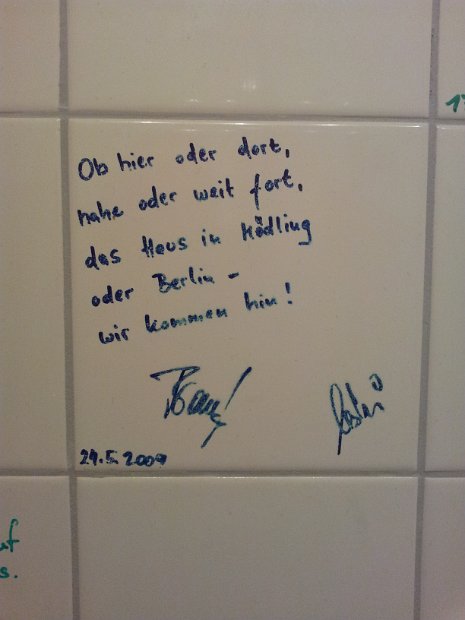 Ob hier oder dort,
nahe oder weit fort,
das Haus in Mödling
oder Berlin –
wir kommen hin!
24.5.2009